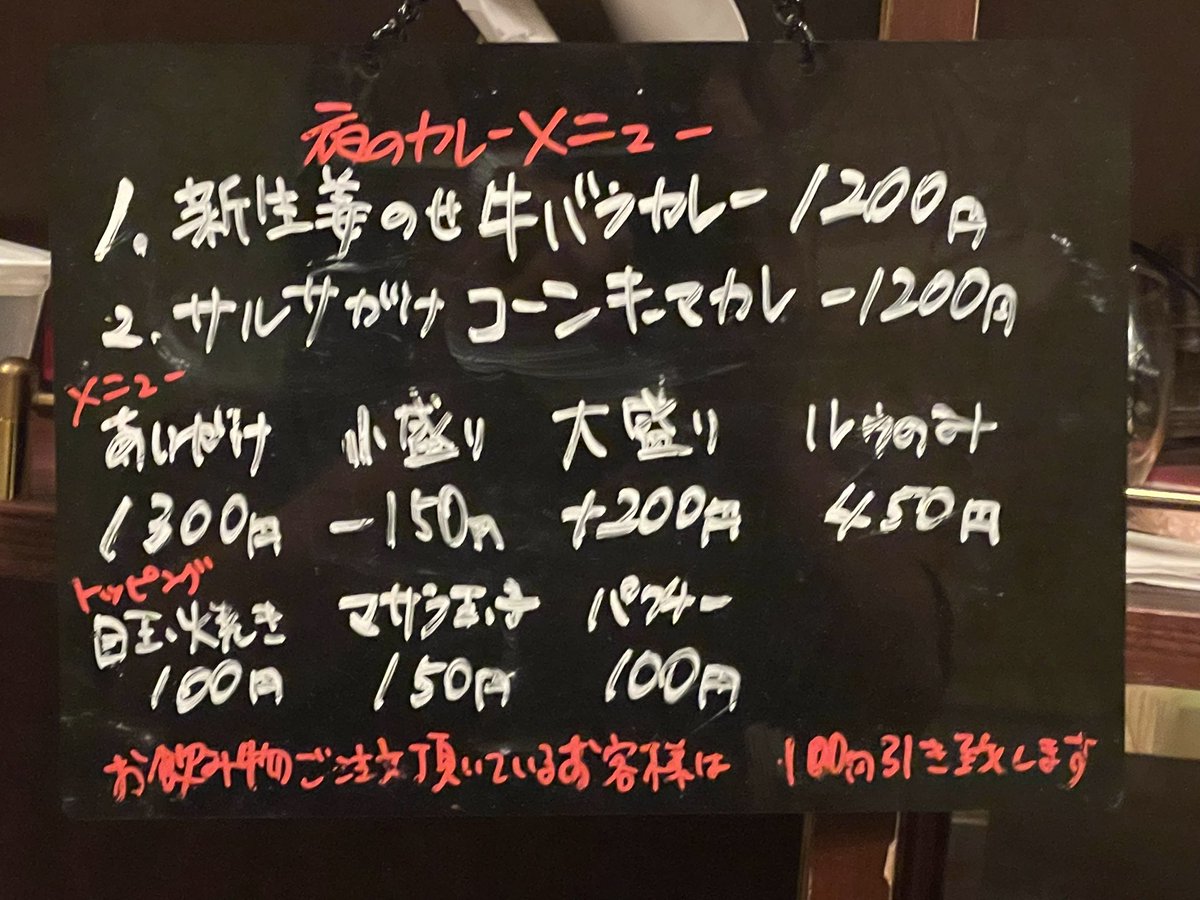 夜のカレーメニュー
1. 新生姜のせ 牛バラカレー 1200円
2. サルサがけ コーンキーマカレー 1200円
メニュー
あいがけ 小盛り 大盛り ルウのみ
1300円 -150円 +200円 450円
トッピング
目玉焼き マサラ玉子 パクチー
100円 150円 100円
お飲み物のご注文頂いているお客様は 100円引き致します